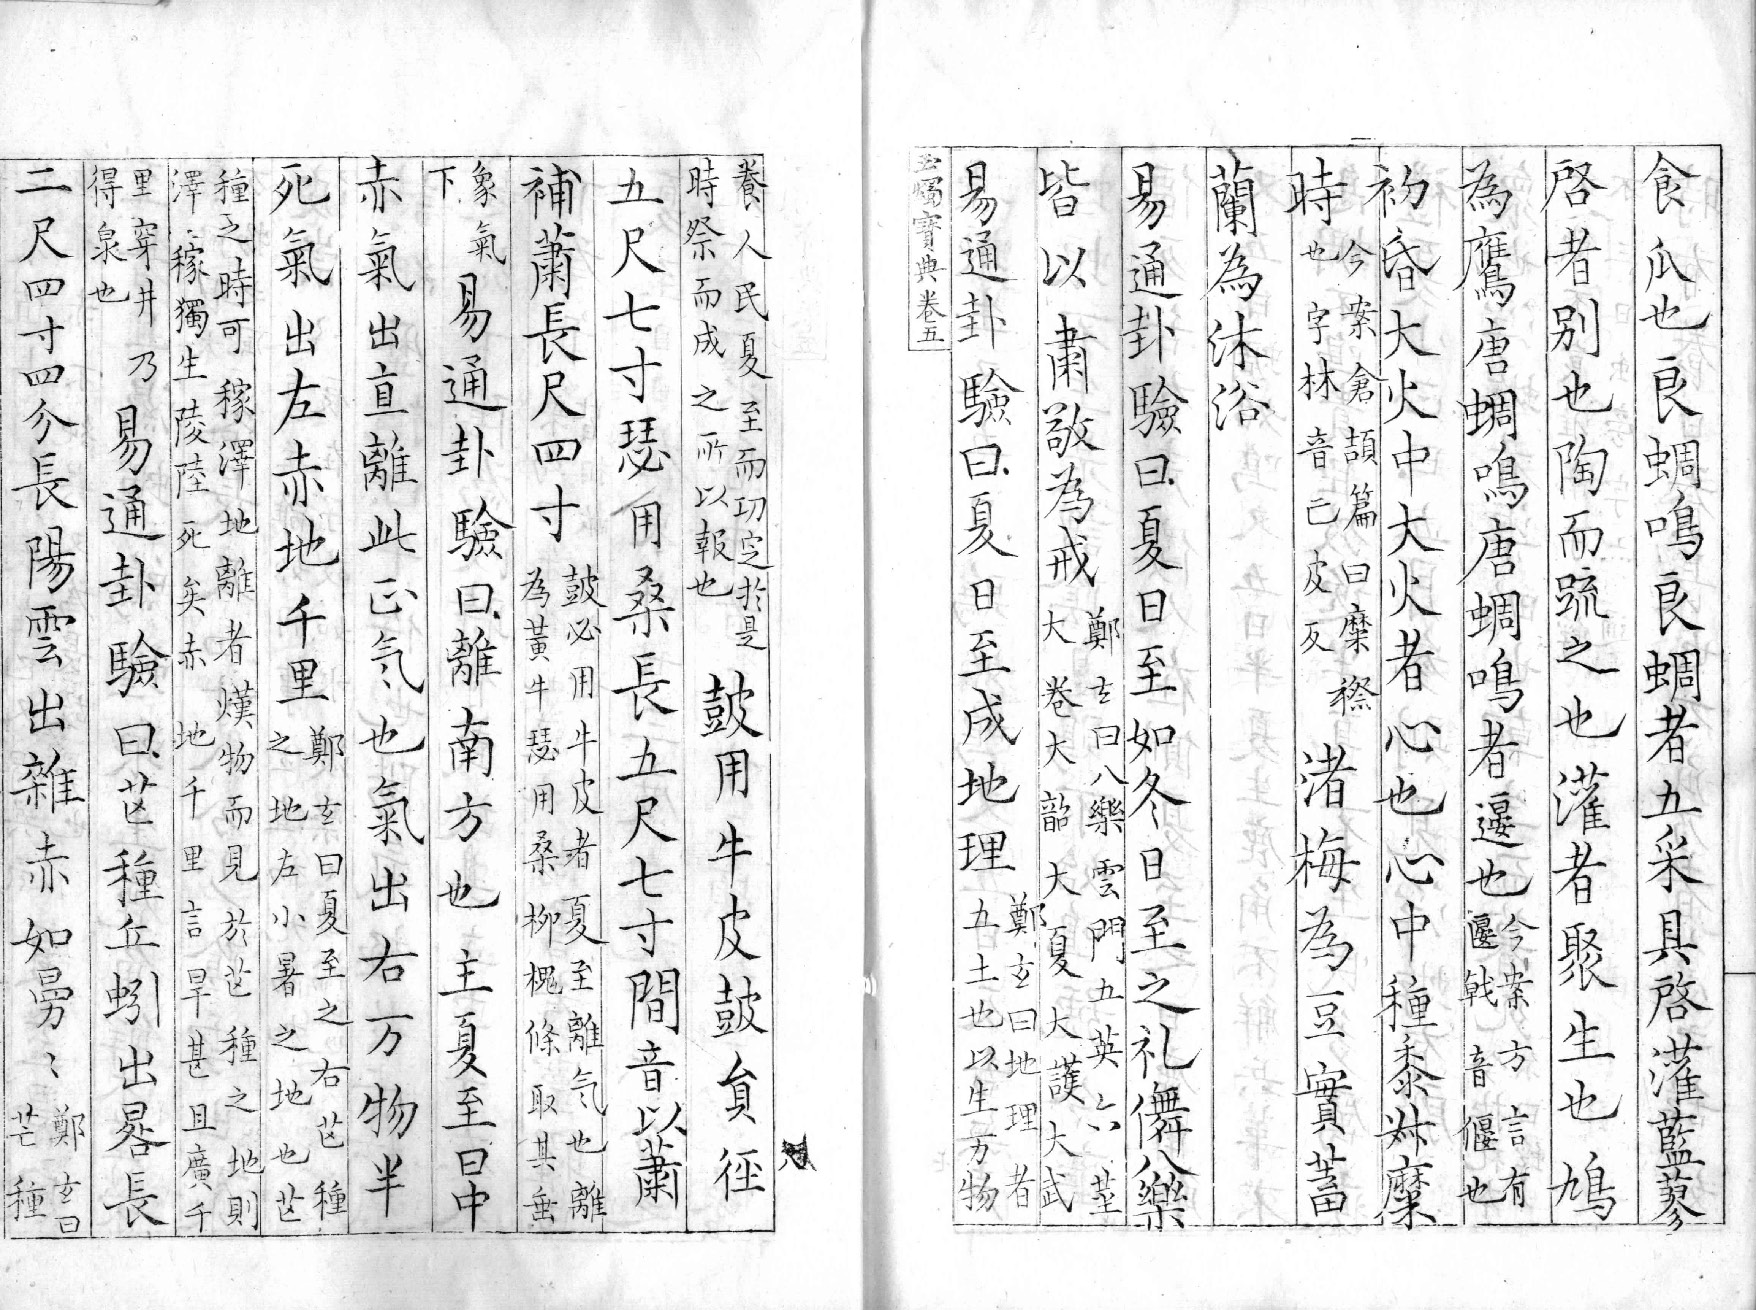 食瓜也良蜩鳴良蜩者五采具啓灌藍蓼
啓者別也陶而疏之也灌者聚生也鳩
為鷹唐蜩鳴唐蜩鳴者匽也今案方言有
匽戟音偃也
初昏大火中大火者心也心中種黍菽糜
時今案倉頡篇曰糜穄
也字林音己皮反
渚梅為豆實蓄
蘭為沐浴
易通卦驗曰夏日至如冬日至之礼儛八樂
皆以肅敬為戒鄭玄曰八樂雲門五英六莖
大卷大韶大夏大護大武
易通卦驗曰夏日至成地理鄭玄曰地理者
五土也以生万物
玉燭寶典卷五
養人民夏至而功定於是
時祭而成之所以報也
鼓用牛皮鼓員徑
五尺七寸瑟用桑長五尺七寸間音以蕭
補蕭長尺四寸鼓必用牛皮者夏至離气也離
為黃牛瑟用桑柳槐條取其垂
象氣
下
易通卦驗曰離南方也主夏至日中
赤氣出直離此正气也氣出右万物半
死氣出左赤地千里鄭玄曰夏至之右芒種
之地左小暑之地也芒
種之時可稼澤地離者熯物而見於芒種之地則
澤稼獨生陵陸死矣赤地千里言旱甚且廣千
里穿井乃
得泉也
易通卦驗曰芒種丘蚓出晷長
二尺四寸四分長陽雲出雜赤如曼〻鄭玄曰
芒種